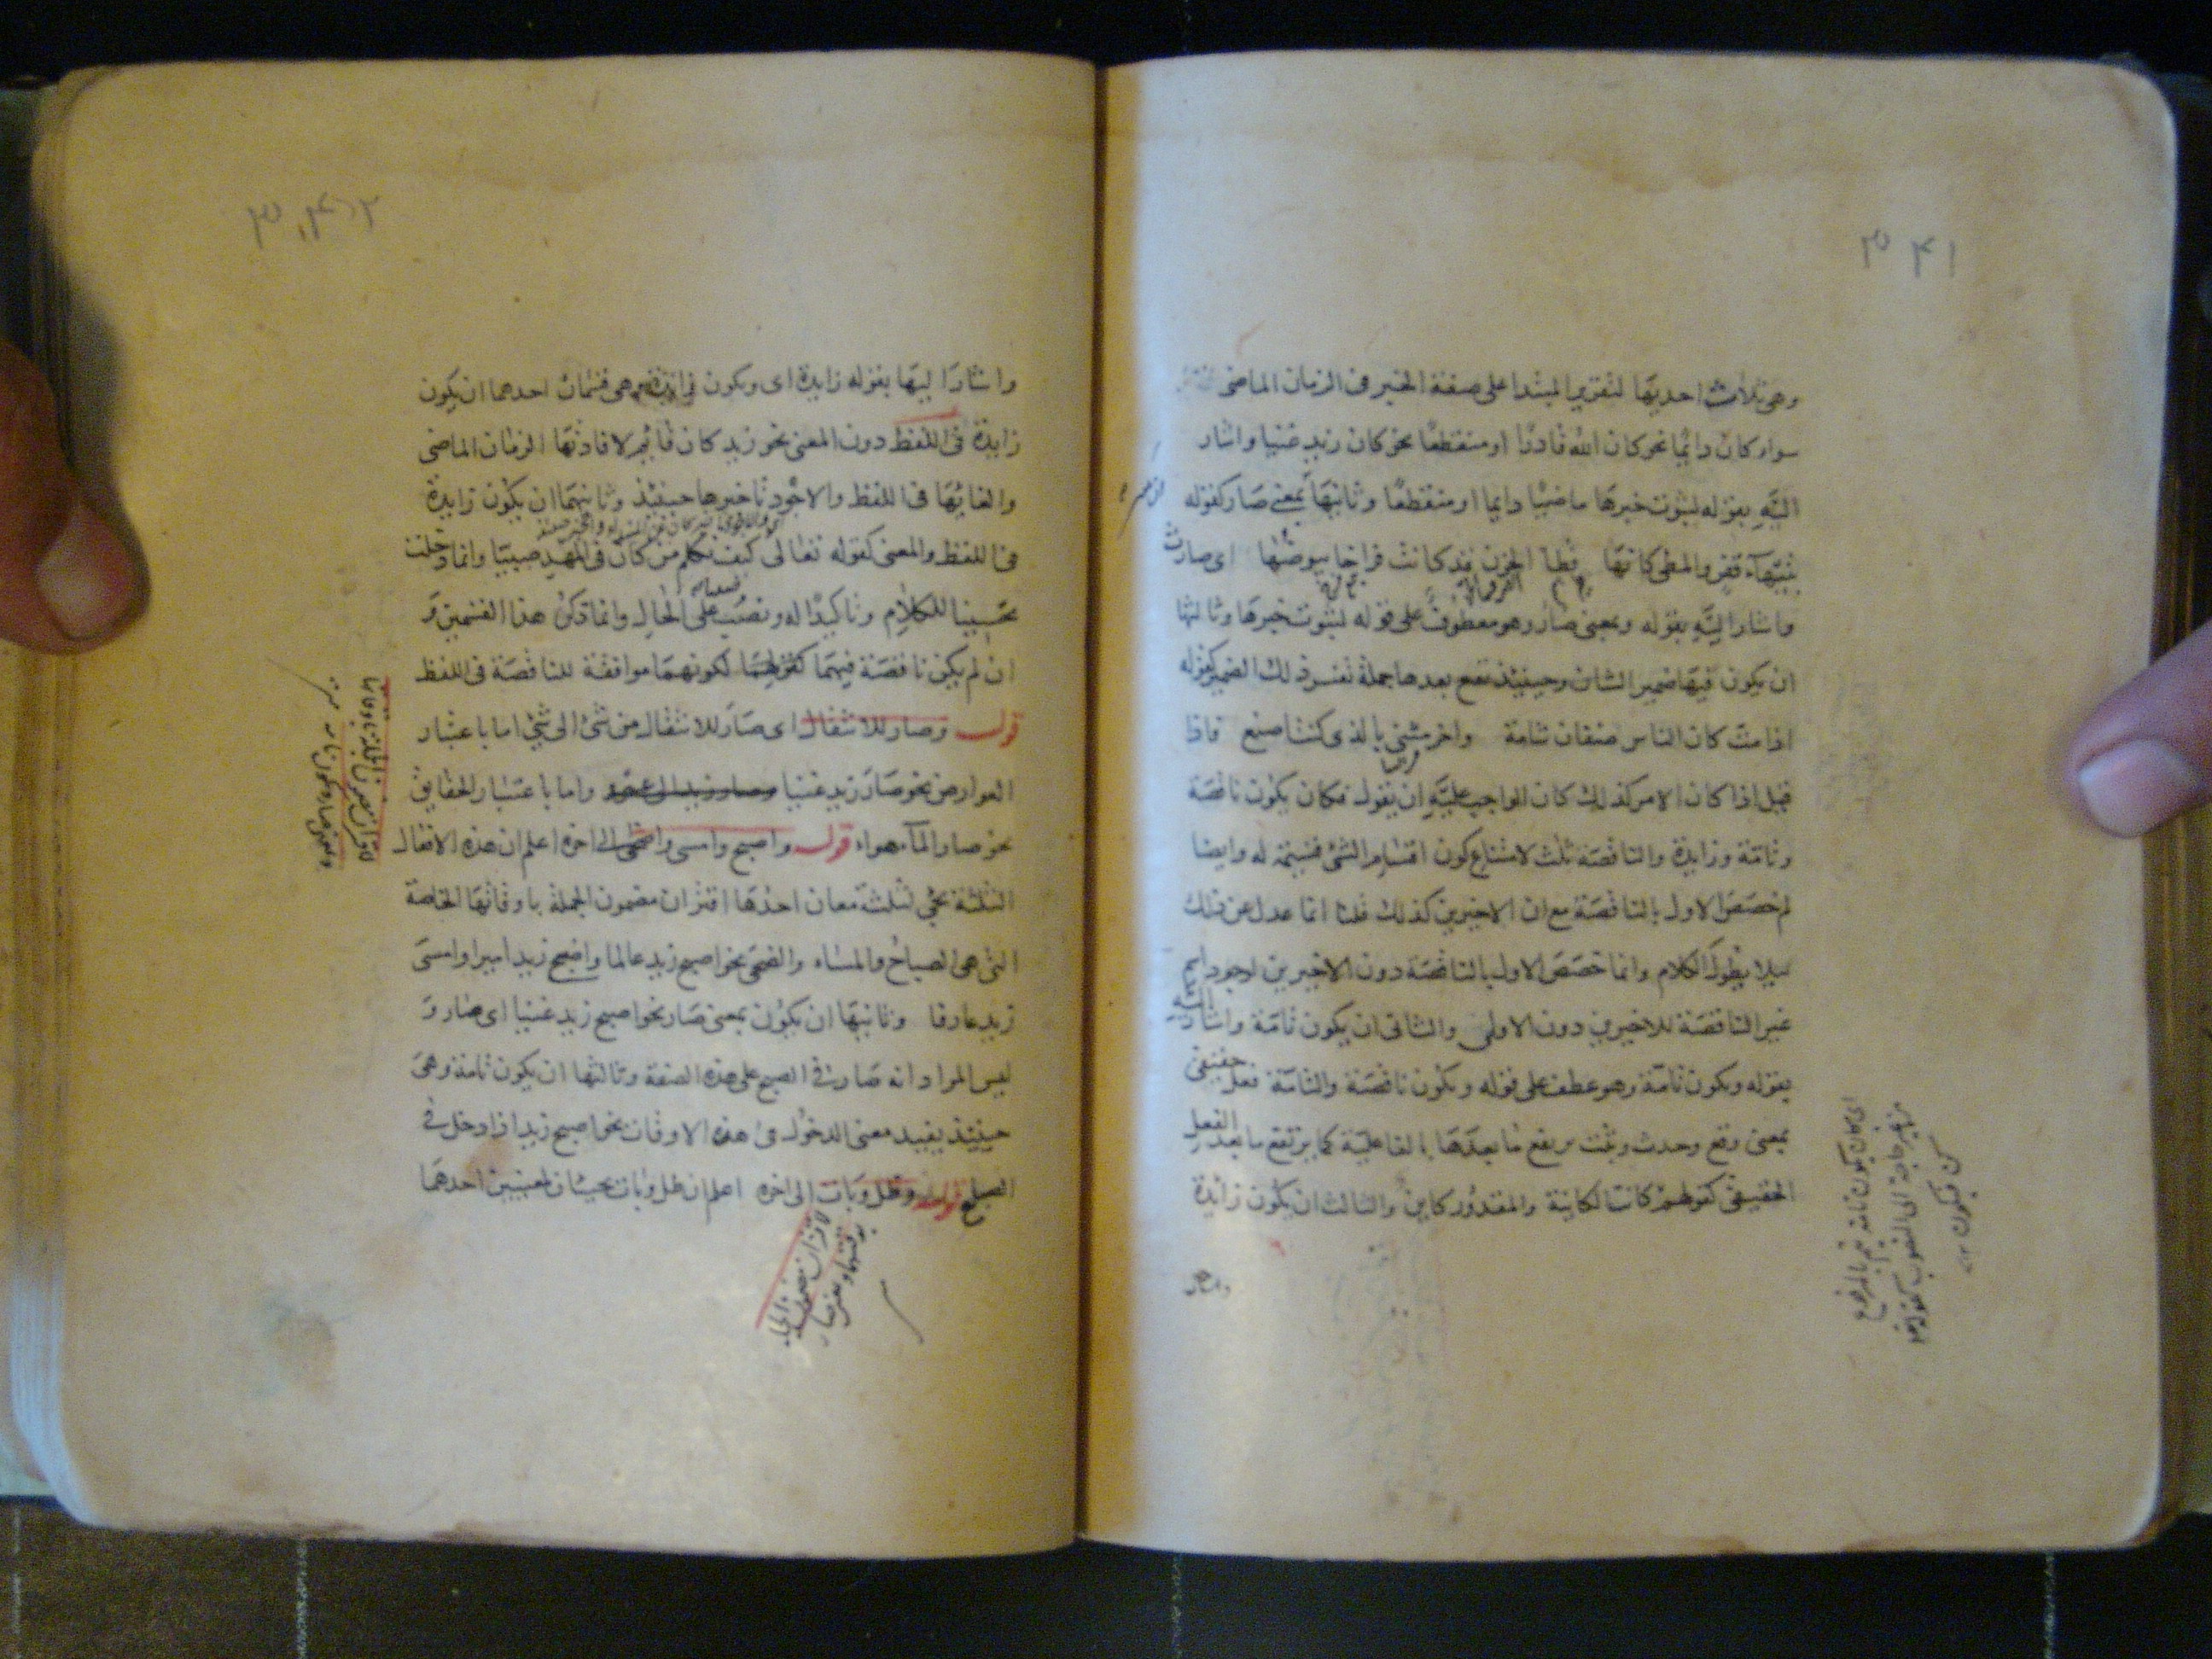 ٣٤١
وهي ثلاث احديها لتقرير المبتدا على صفة الخبر فى الزمان الماضى
سواء كان دايما نحو كان الله قادرا او منقطعا نحو كان زيد غنيا واشار
اليه بقوله لثبوت خبرها ماضيا دايما او منقطعا وثانيها بمعنى صار كقوله
بتيهاء قفر والمطى كانها قطا الحزن قد كانت فراخا بيوضها اى صارت
واشار اليه بقوله وبمعنى صار وهو معطوف على قوله لثبوت خبرها وثالثها
ان يكون فيها ضمير الشان وحينئذ تقع بعدها جملة تفسر ذلك الضمير كقوله
اذا مت كان الناس صنفان شامة واخر مثنى بالذى كنت اصنع فاذا
قيل اذا كان الامر كذلك كان الواجب عليه ان يقول فكان يكون ناقصة
وتامة وزايدة والناقصة ثلث لامتناع كون اقسام الشئ قسيمة له وايضا
لم خصص الاول بالناقصة مع ان الاخيرين كذلك قلنا انما عدل عن ذلك
ليلا يطول الكلام وانما خصص الاول بالناقصة دون الاخيرين لوجود اسم
غير الناقصة للاخيرين دون الاولى والثانى ان يكون تامة واشار اليه
بقوله ويكون تامة وهو عطف على قوله ويكون ناقصة والتامة فعل حقيقى
بمعنى وقع وحدث وثبت يرتفع ما بعدها بالفاعلية كما يرتفع ما بعد الفعل
الحقيقى كقولهم كانت الكاينة والمقدور كاين والثالث ان يكون زايدة
واشار
واشار اليها بقوله زايدة اى ويكون زايدة وهى قسمان احدهما ان يكون
زايدة فى اللفظ دون المعنى نحو زيد كان قايم لافادتها الزمان الماضى
والغائها فى اللفظ والاجود تاخيرها حينئذ وثانيهما ان يكون زايدة
فى اللفظ والمعنى كقوله تعالى كيف نكلم من كان فى المهد صبيا وانما دخلت
تحسينا للكلام وتاكيدا له ونصب على الحال وانما ذكر هذا القسمين و
ان لم يكن ناقصة فيهما كقولهما لكونهما موافقة للناقصة فى اللفظ
قوله وصار للانتقال اى صار للانتقال من شئ الى شئ اما باعتبار
العوارض نحو صار زيد غنيا واما باعتبار الحقايق
نحو صار الماء هواء قوله واصبح وامسى واضحى الى اخره اعلم ان هذه الافعال
الثلثة تجئ لثلثة معان احدها اقتران مضمون الجملة باوقاتها الخاصة
التى هى الصباح والمساء والضحى نحو اصبح زيد عالما واضحى زيد اميرا وامسى
زيد عارفا وثانيها ان يكون بمعنى صار نحو اصبح زيد غنيا اى صار و
ليس المراد انه صار فى الصبح على هذه الصفة وثالثها ان يكون تامة وهى
حينئذ يفيد معنى الدخول فى هذه الاوقات نحو اصبح زيد اذا دخل فى
الصباح قوله وظل وبات الى اخره اعلم ان ظل وبات يجيئان لمعنيين احدهما